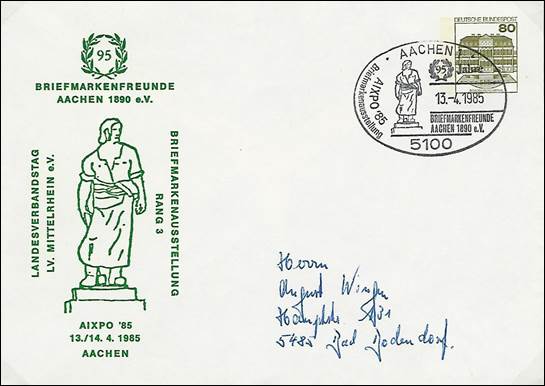 95
BRIEFMARKENFREUNDE
AACHEN 1890 e.V.
LANDESVERBANDSTAG
LV. MITTELRHEIN e.V.
BRIEFMARKENAUSSTELLUNG
RANG 3
AIXPO '85
13./14. 4. 1985
AACHEN
DEUTSCHE BUNDESPOST
80
AACHEN 1
95 Jahre
Briefmarkenausstellung
AIXPO '85
13.-4.1985
BRIEFMARKENFREUNDE
AACHEN 1890 e.V.
5100
Herrn
August Wingen
Hauptstr.
5485 Bad Bodendorf.